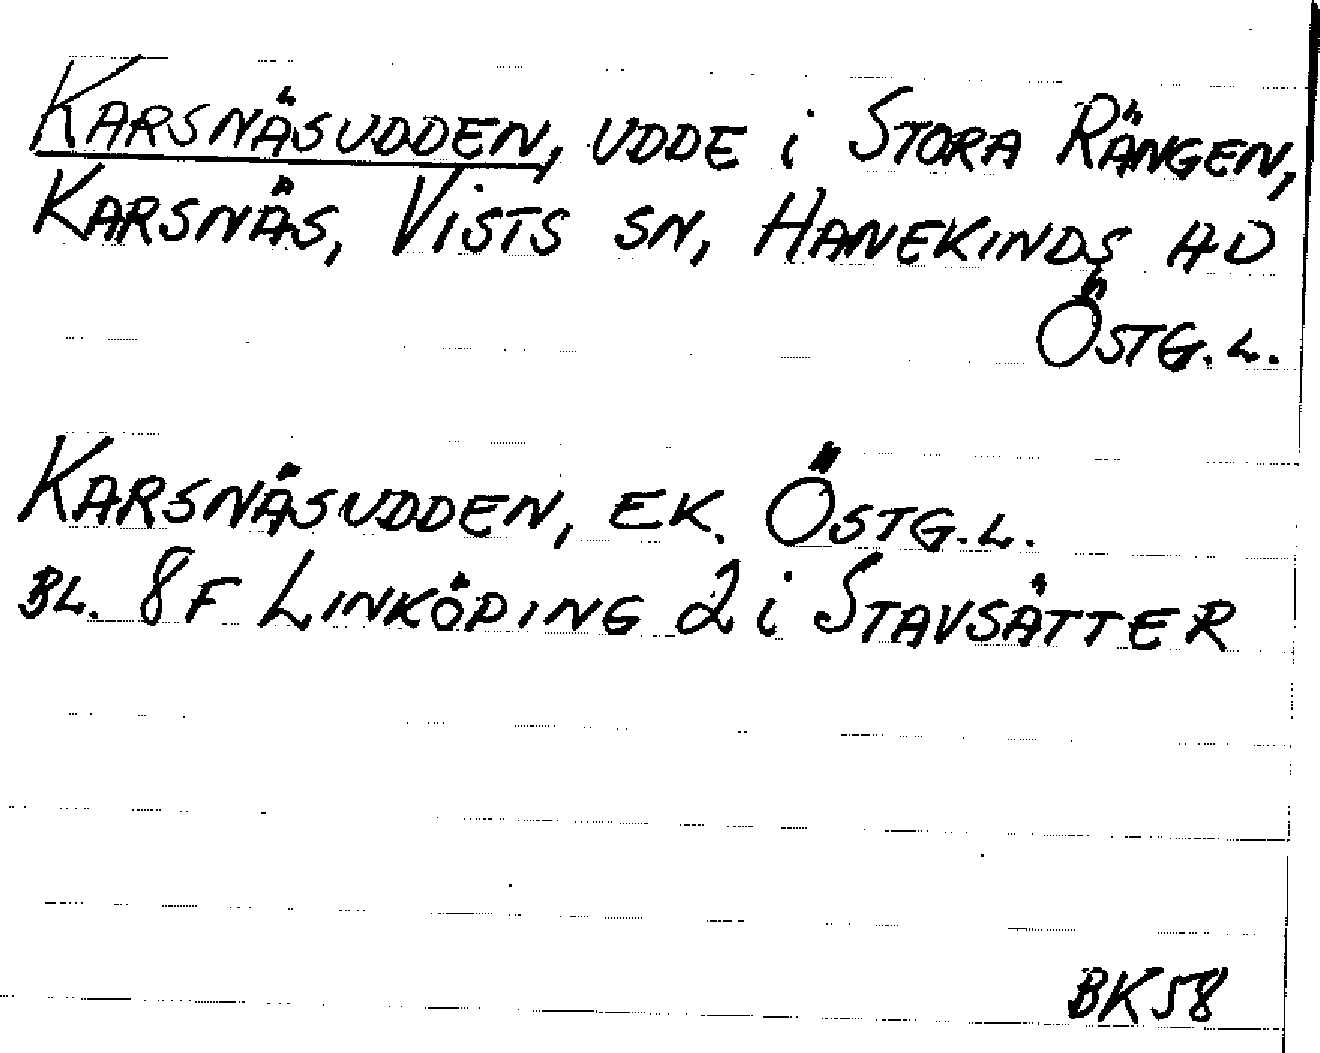 KARSNÄSUDDEN, UDDE i STORA RÄNGEN,
KARSNÄS, VISTS SN, HANEKINDS HD
ÖSTG.L.
KARSNÄSUDDEN, EK. ÖSTG.L.
BL. 8F LINKÖPING 2 i STAVSÄTTER
BK58